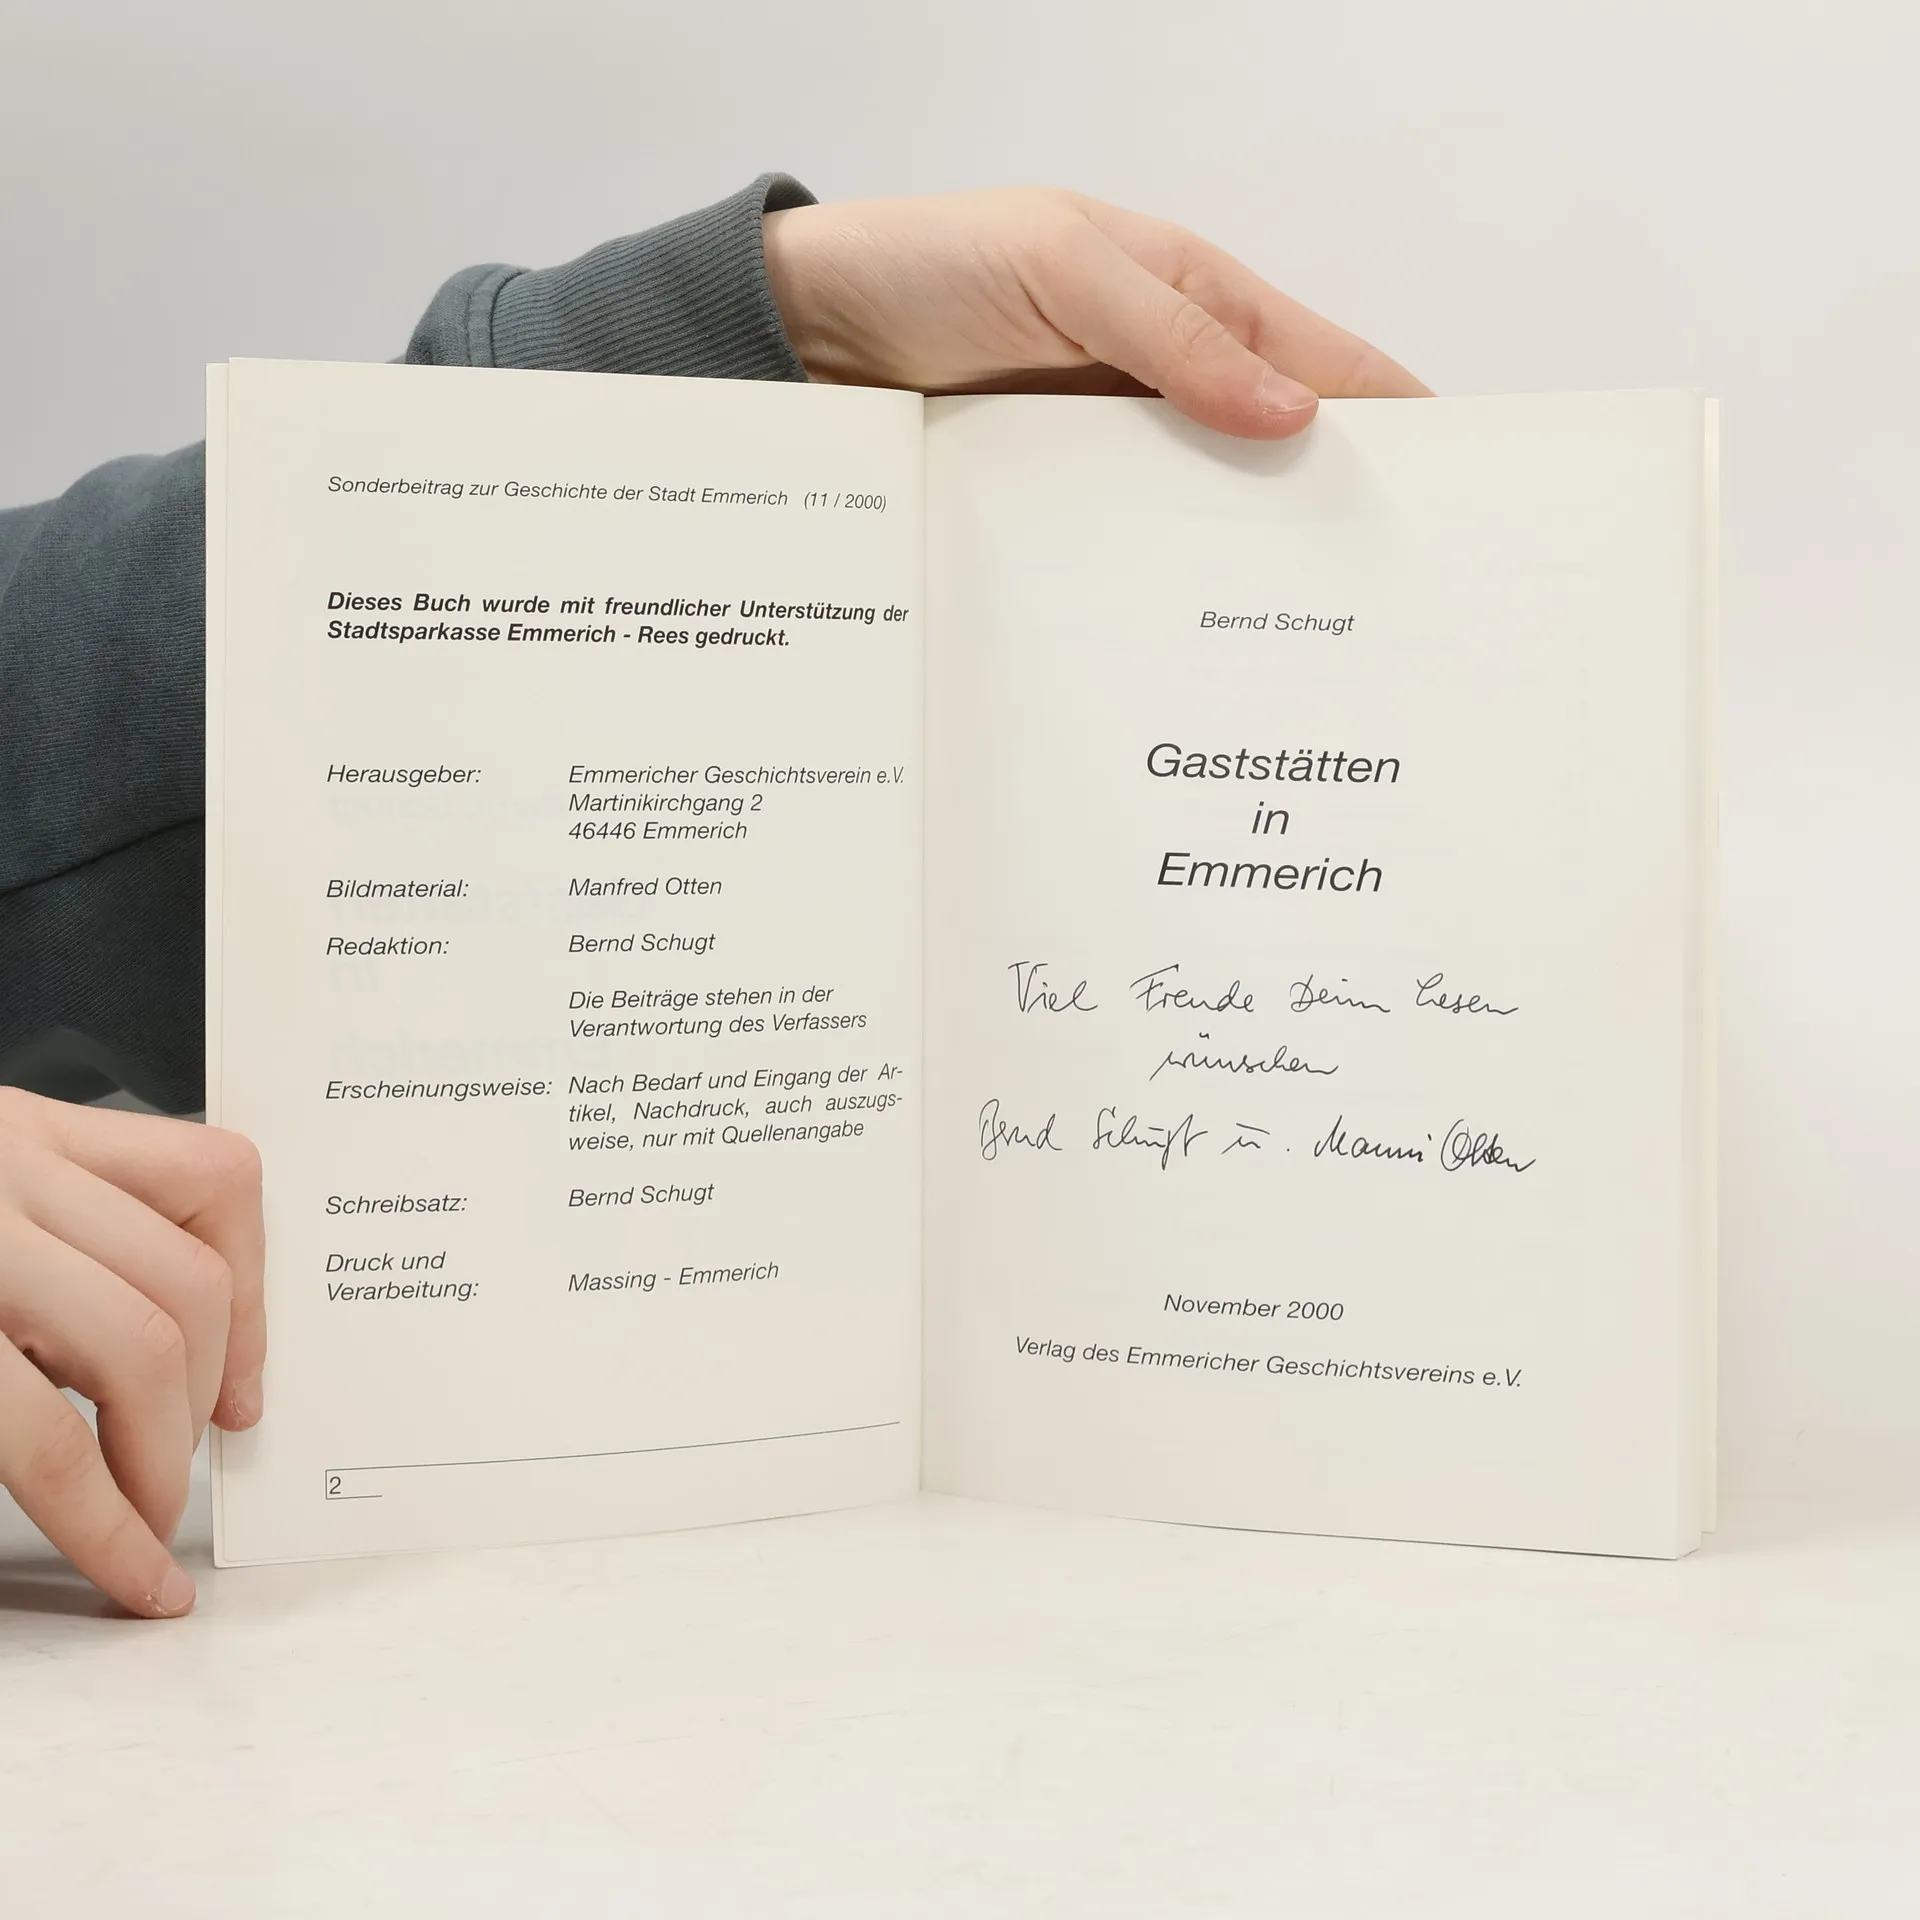 Sonderbeitrag zur Geschichte der Stadt Emmerich (11 / 2000)
Dieses Buch wurde mit freundlicher Unterstützung der
Stadtsparkasse Emmerich - Rees gedruckt.
Herausgeber: Emmericher Geschichtsverein e.V.
Martinikirchgang 2
46446 Emmerich
Bildmaterial: Manfred Otten
Redaktion: Bernd Schugt
Die Beiträge stehen in der
Verantwortung des Verfassers
Erscheinungsweise: Nach Bedarf und Eingang der Ar-
tikel, Nachdruck, auch auszugs-
weise, nur mit Quellenangabe
Schreibsatz: Bernd Schugt
Druck und
Verarbeitung: Massing - Emmerich
2
Bernd Schugt
Gaststätten
in
Emmerich
Viel Freude beim Lesen
wünschen
Bernd Schugt u. Manni Otten
November 2000
Verlag des Emmericher Geschichtsvereins e.V.